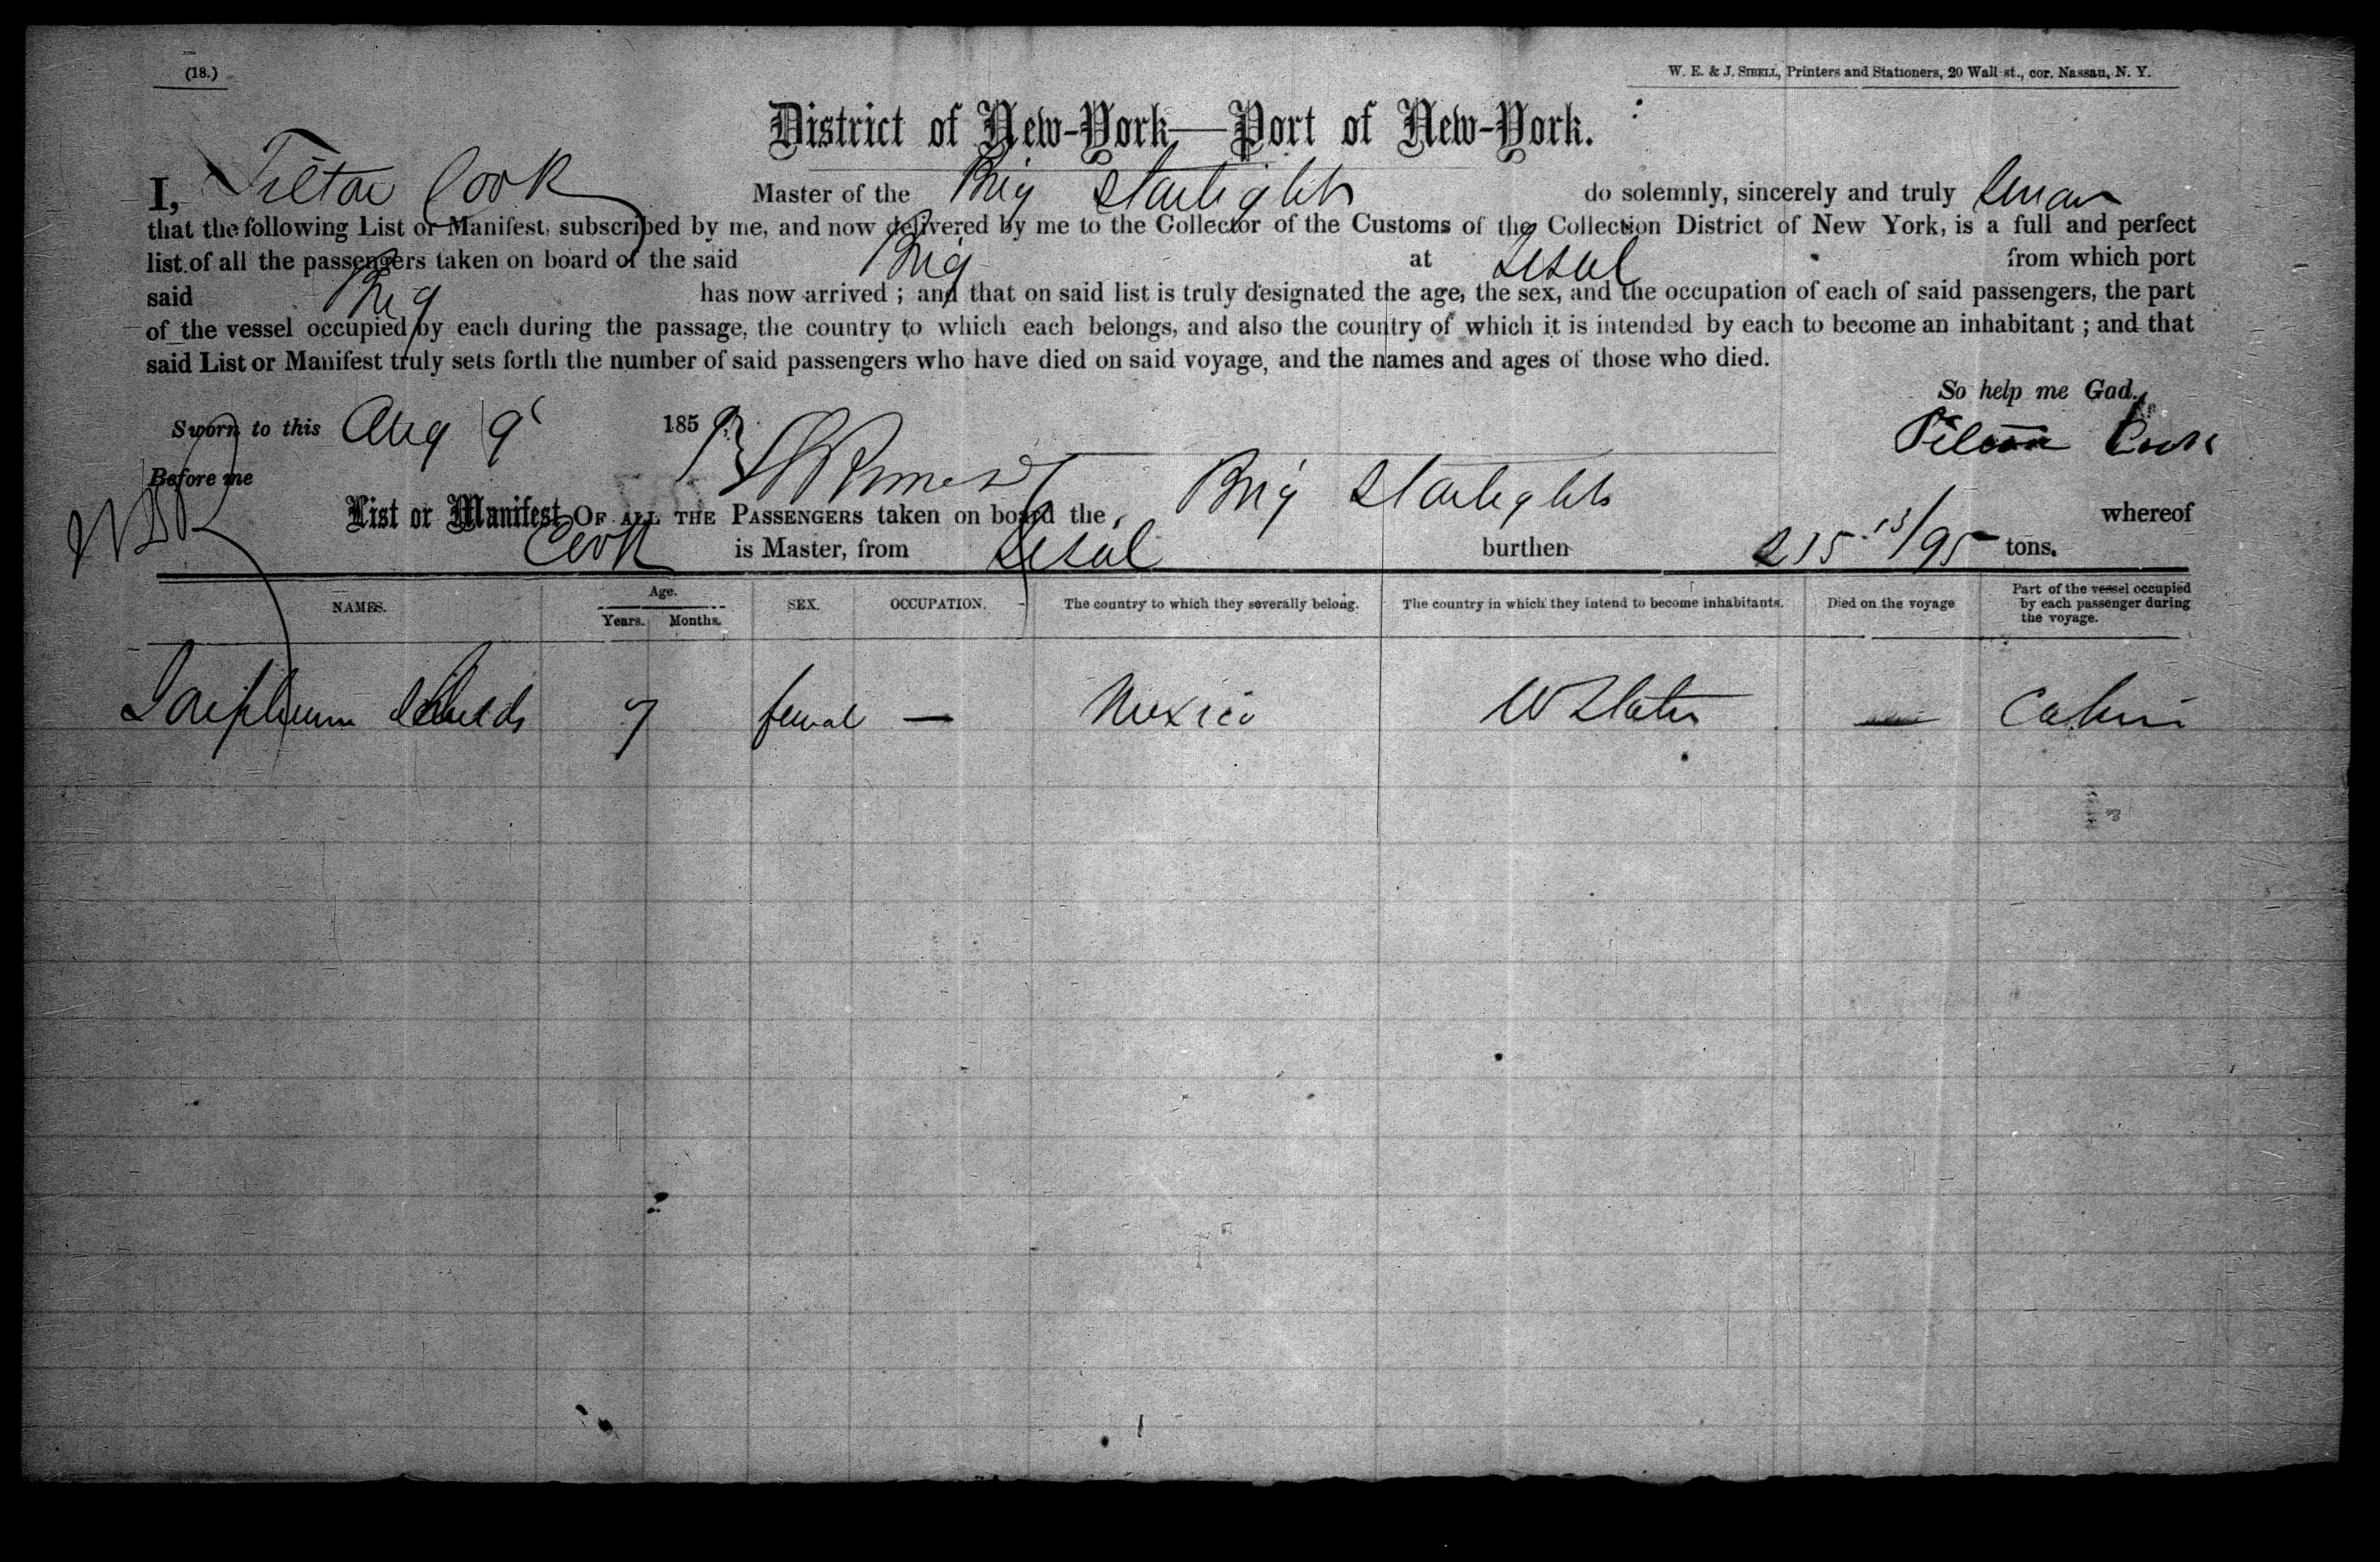 (18.)
W. E. & J. SIBELL, Printers and Stationers, 20 Wall-st., cor. Nassau, N. Y.
District of New-York—Port of New-York.
I, Tilton Cook Master of the Brig Starlight do solemnly, sincerely and truly swear
that the following List or Manifest, subscribed by me, and now delivered by me to the Collector of the Customs of the Collection District of New York, is a full and perfect
list of all the passengers taken on board of the said Brig at Sisal from which port
said Brig has now arrived ; and that on said list is truly designated the age, the sex, and the occupation of each of said passengers, the part
of the vessel occupied by each during the passage, the country to which each belongs, and also the country of which it is intended by each to become an inhabitant ; and that
said List or Manifest truly sets forth the number of said passengers who have died on said voyage, and the names and ages of those who died.
So help me God.
Sworn to this Aug 9 1859 Tilton Cook
Before me
List or Manifest OF ALL THE PASSENGERS taken on board the Brig Starlight whereof
Cook is Master, from Sisal burthen 215 13/95 tons.
NAMES. Age. Years. Months. SEX. OCCUPATION. The country to which they severally belong. The country in which they intend to become inhabitants. Died on the voyage Part of the vessel occupied by each passenger during the voyage.
7 femal — Mexico U States — Cabin